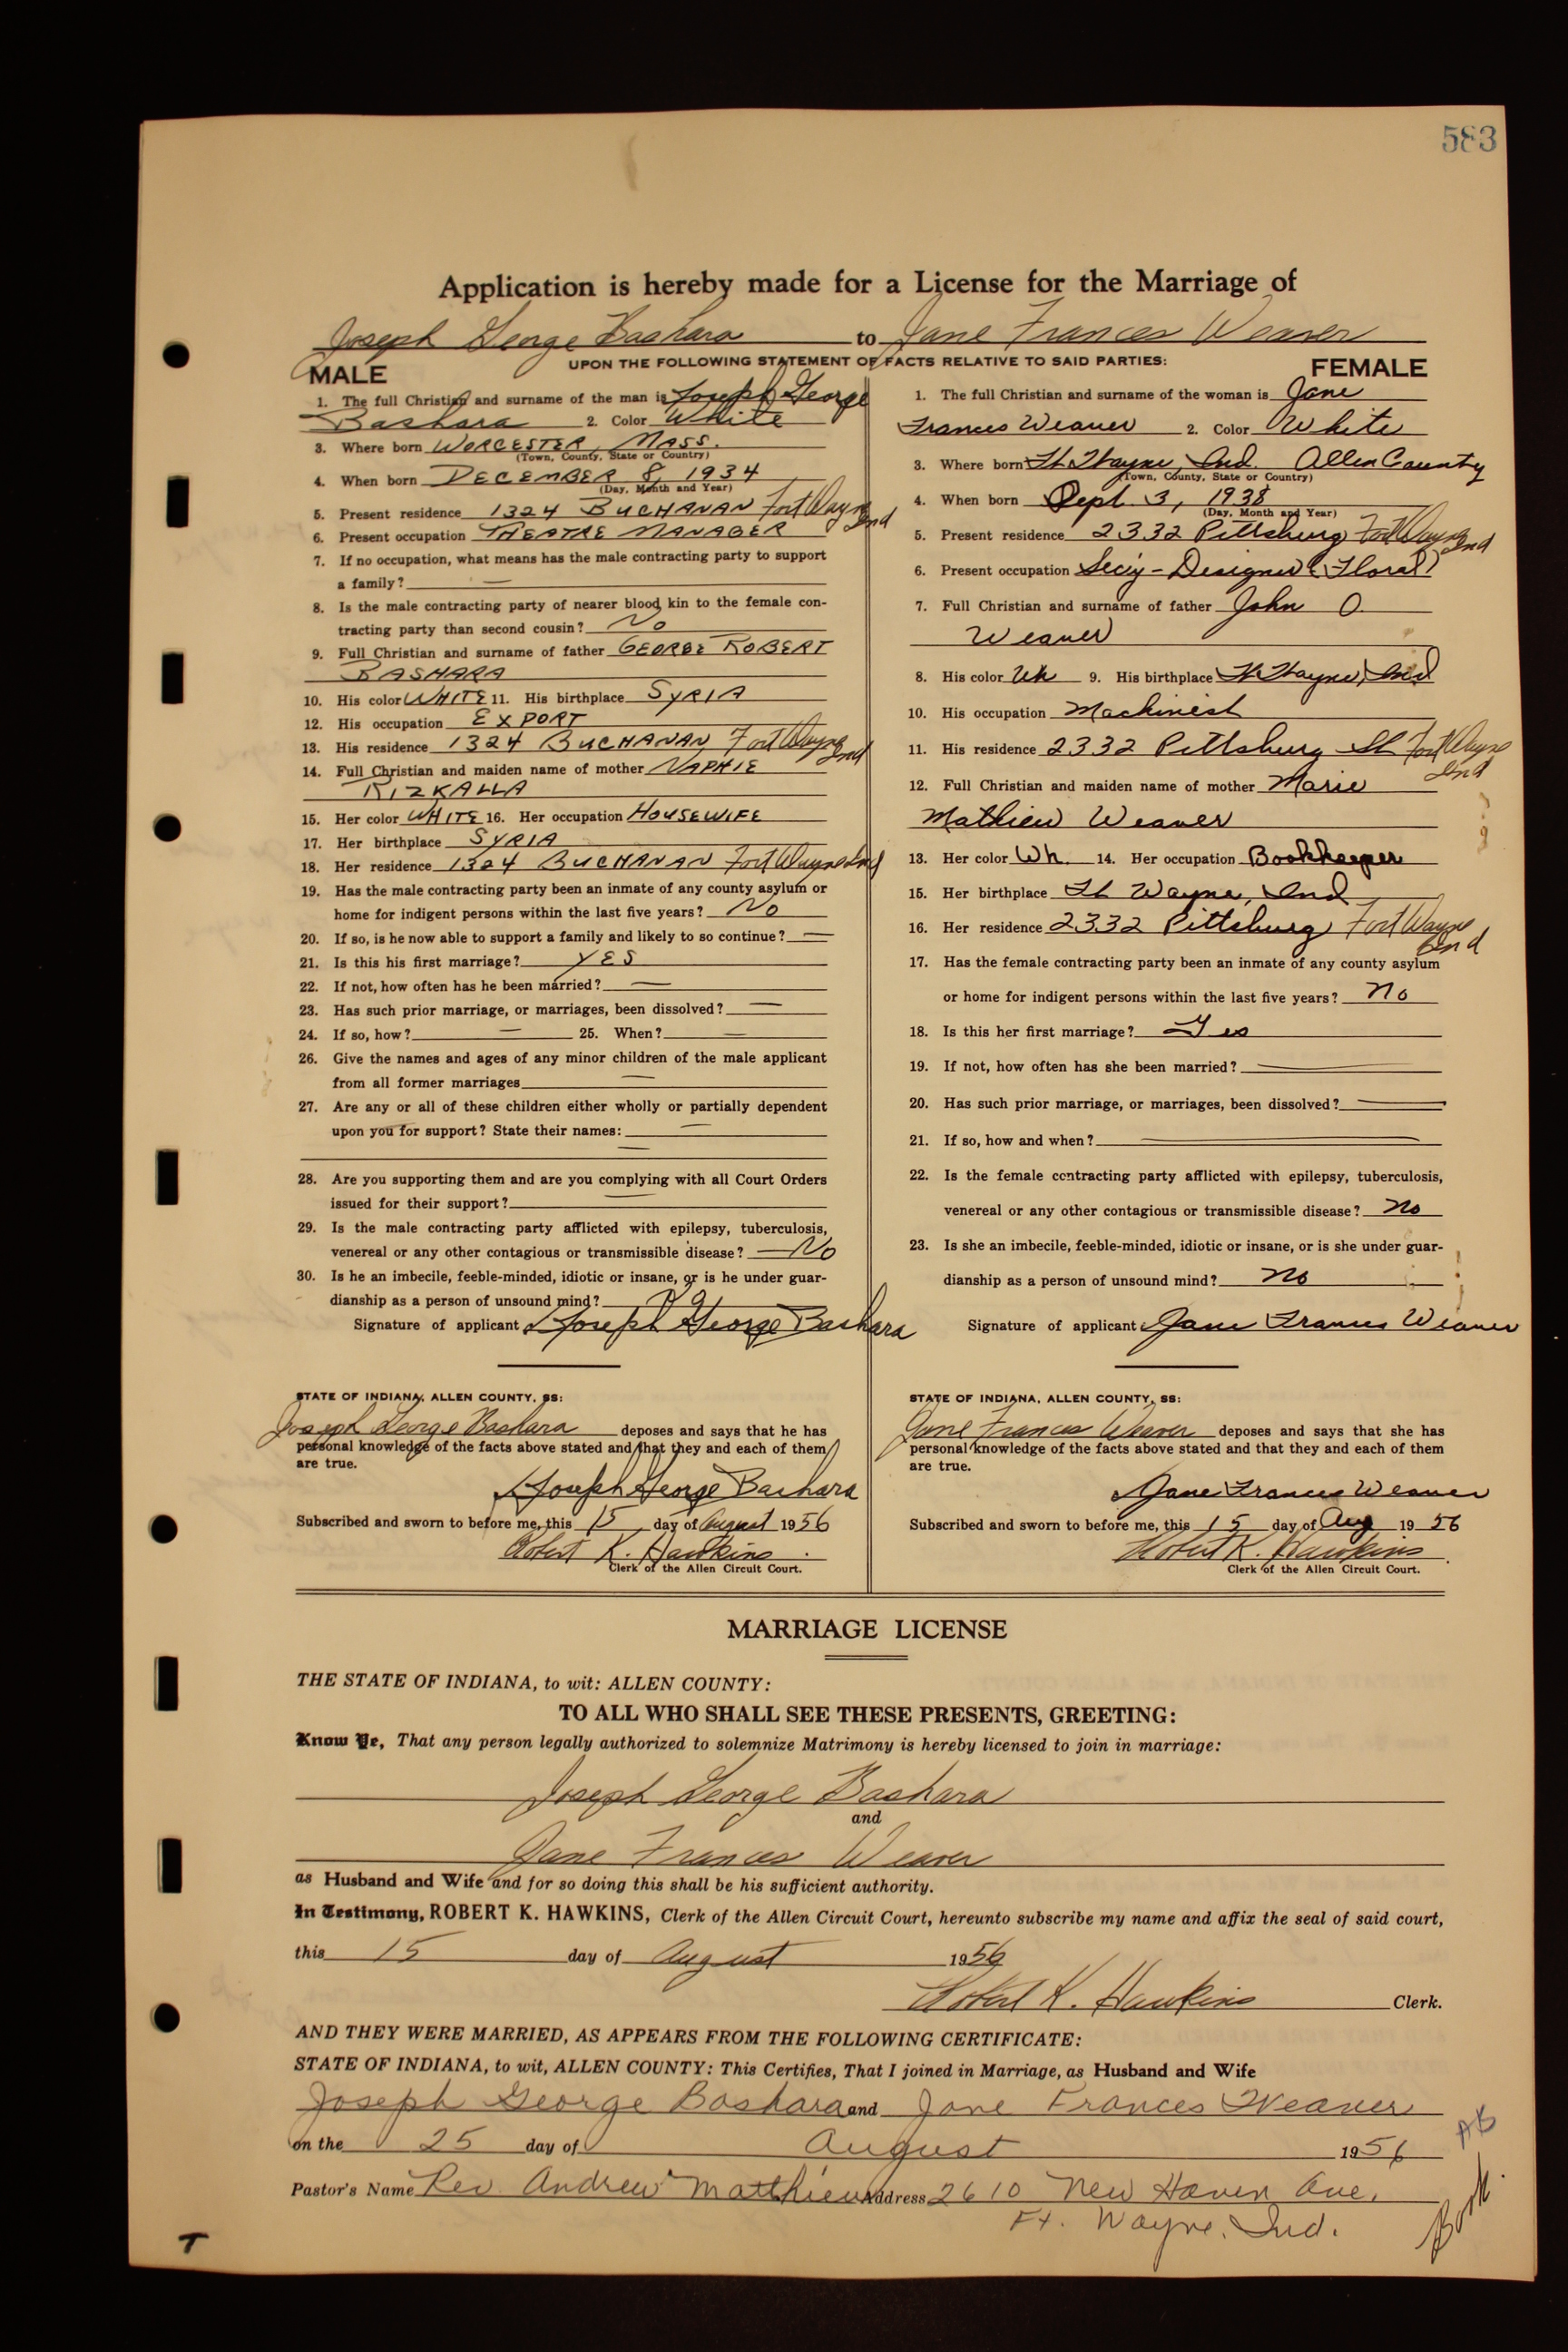 583
Application is hereby made for a License for the Marriage of
Joseph George Bashara to Jane Frances Weaver
UPON THE FOLLOWING STATEMENT OF FACTS RELATIVE TO SAID PARTIES:
MALE
1. The full Christian and surname of the man is Joseph George
Bashara 2. Color White
3. Where born WORCESTER, MASS.
(Town, County, State or Country)
4. When born DECEMBER 8, 1934
(Day, Month and Year)
5. Present residence 1324 BUCHANAN Fort Wayne Ind
6. Present occupation THEATRE MANAGER
7. If no occupation, what means has the male contracting party to support
a family? —
8. Is the male contracting party of nearer blood kin to the female con-
tracting party than second cousin? No
9. Full Christian and surname of father GEORGE ROBERT
BASHARA
10. His color WHITE 11. His birthplace SYRIA
12. His occupation EXPORT
13. His residence 1324 BUCHANAN Fort Wayne Ind
14. Full Christian and maiden name of mother NAPHIE
RIZKALLA
15. Her color WHITE 16. Her occupation HOUSEWIFE
17. Her birthplace SYRIA
18. Her residence 1324 BUCHANAN Fort Wayne Ind
19. Has the male contracting party been an inmate of any county asylum or
home for indigent persons within the last five years? No
20. If so, is he now able to support a family and likely to so continue? —
21. Is this his first marriage? YES
22. If not, how often has he been married? —
23. Has such prior marriage, or marriages, been dissolved? —
24. If so, how? — 25. When? —
26. Give the names and ages of any minor children of the male applicant
from all former marriages —
27. Are any or all of these children either wholly or partially dependent
upon you for support? State their names: —
—
28. Are you supporting them and are you complying with all Court Orders
issued for their support? —
29. Is the male contracting party afflicted with epilepsy, tuberculosis,
venereal or any other contagious or transmissible disease? —No
30. Is he an imbecile, feeble-minded, idiotic or insane, or is he under guar-
dianship as a person of unsound mind? No
Signature of applicant Joseph George Bashara
STATE OF INDIANA, ALLEN COUNTY, SS:
Joseph George Bashara deposes and says that he has
personal knowledge of the facts above stated and that they and each of them
are true.
Joseph George Bashara
Subscribed and sworn to before me, this 15 day of August 1956
Robert K. Hawkins
Clerk of the Allen Circuit Court.
FEMALE
1. The full Christian and surname of the woman is Jane
Frances Weaver 2. Color White
3. Where born Ft Wayne, Ind. Allen County
(Town, County, State or Country)
4. When born Sept 3, 1938
(Day, Month and Year)
5. Present residence 2332 Pittsburg Fort Wayne Ind
6. Present occupation Sec'y - Designer (Floral)
7. Full Christian and surname of father John O.
Weaver
8. His color Wh 9. His birthplace Ft Wayne, Ind
10. His occupation Machinist
11. His residence 2332 Pittsburg St Fort Wayne Ind
12. Full Christian and maiden name of mother Marie
Mathieu Weaver
13. Her color Wh. 14. Her occupation Bookkeeper
15. Her birthplace Ft Wayne, Ind
16. Her residence 2332 Pittsburg Fort Wayne Ind
17. Has the female contracting party been an inmate of any county asylum
or home for indigent persons within the last five years? No
18. Is this her first marriage? Yes
19. If not, how often has she been married? —
20. Has such prior marriage, or marriages, been dissolved? —
21. If so, how and when? —
22. Is the female contracting party afflicted with epilepsy, tuberculosis,
venereal or any other contagious or transmissible disease? No
23. Is she an imbecile, feeble-minded, idiotic or insane, or is she under guar-
dianship as a person of unsound mind? No
Signature of applicant Jane Frances Weaver
STATE OF INDIANA, ALLEN COUNTY, SS:
Jane Frances Weaver deposes and says that she has
personal knowledge of the facts above stated and that they and each of them
are true.
Jane Frances Weaver
Subscribed and sworn to before me, this 15 day of Aug 1956
Robert K. Hawkins
Clerk of the Allen Circuit Court.
MARRIAGE LICENSE
THE STATE OF INDIANA, to wit: ALLEN COUNTY:
TO ALL WHO SHALL SEE THESE PRESENTS, GREETING:
Know Ye, That any person legally authorized to solemnize Matrimony is hereby licensed to join in marriage:
Joseph George Bashara
and
Jane Frances Weaver
as Husband and Wife and for so doing this shall be his sufficient authority.
In Testimony, ROBERT K. HAWKINS, Clerk of the Allen Circuit Court, hereunto subscribe my name and affix the seal of said court,
this 15 day of August 1956
Robert K. Hawkins Clerk.
AND THEY WERE MARRIED, AS APPEARS FROM THE FOLLOWING CERTIFICATE:
STATE OF INDIANA, to wit, ALLEN COUNTY: This Certifies, That I joined in Marriage, as Husband and Wife
Joseph George Bashara and Jane Frances Weaver
on the 25 day of August 1956
Pastor's Name Rev Andrew Matthieu Address 2610 New Haven Ave.
Ft. Wayne, Ind.
T